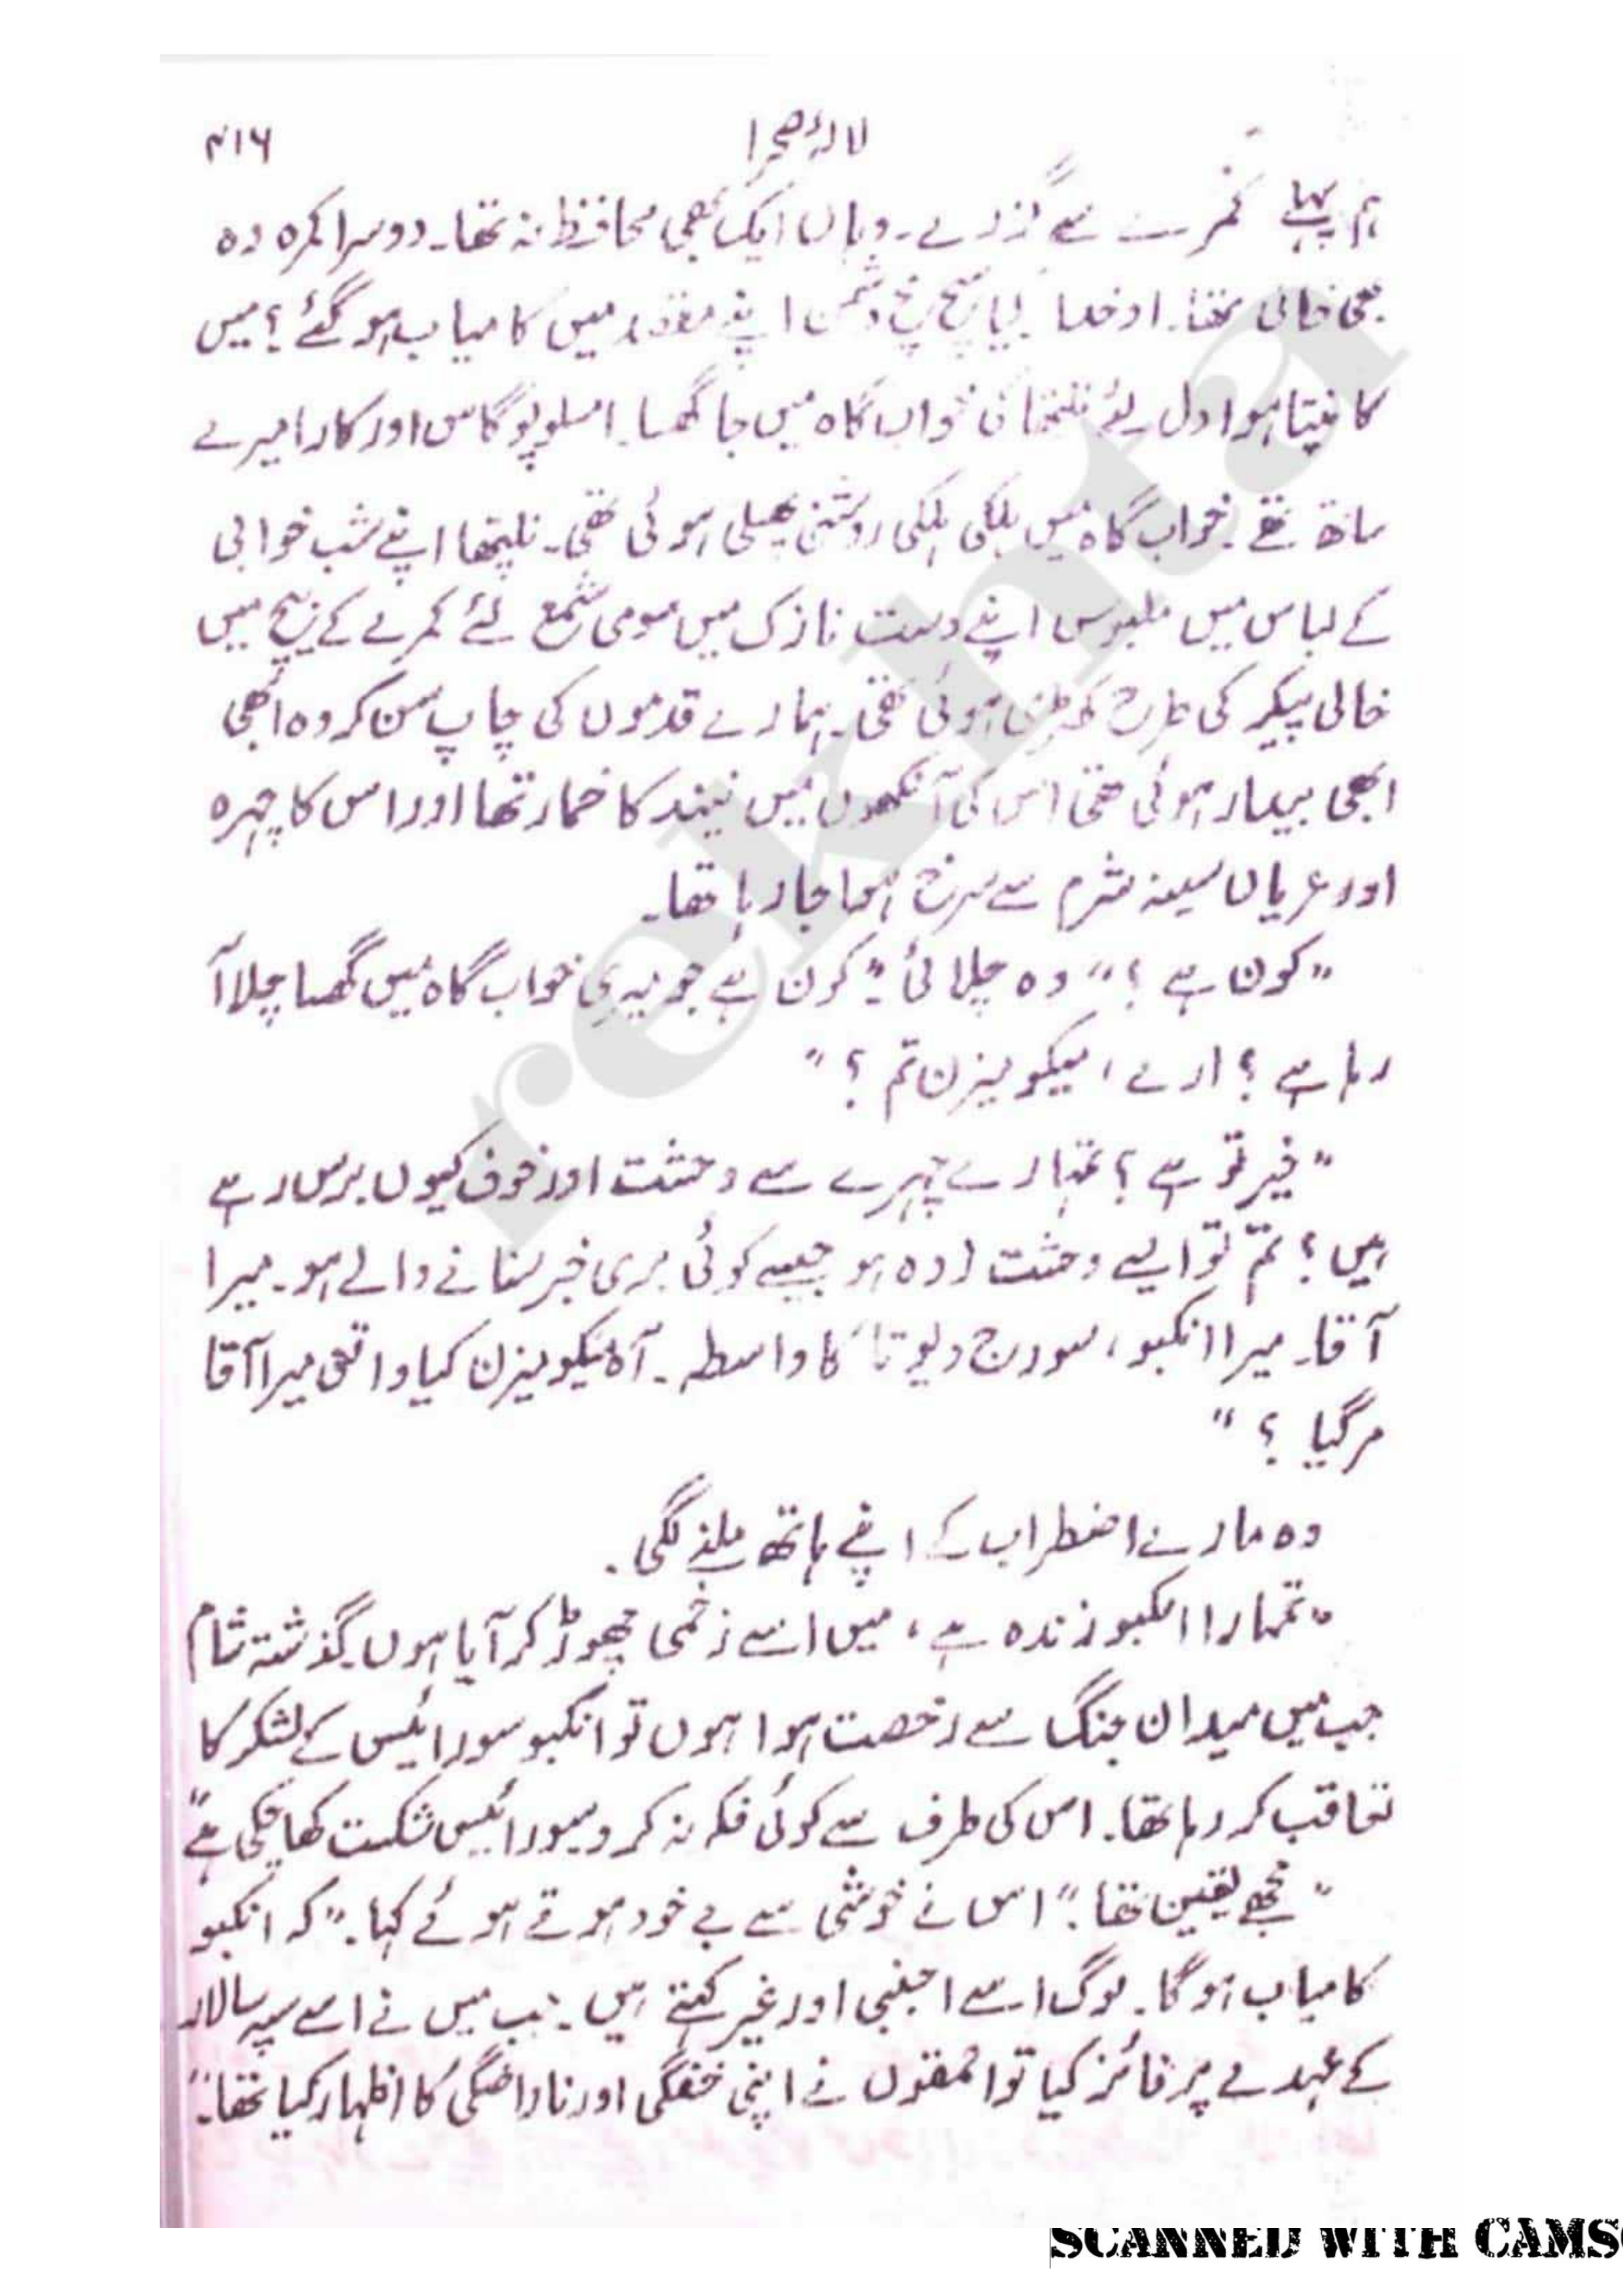 لالۂ صحرا
۴۱۶
ہم پہلے کمرے سے گزرے۔ وہاں ایک بھی محافظ نہ تھا۔ دوسرا کمرہ وہ
بھی خالی تھا۔ او خدا کیا سچ مچ دشمن اپنے مقصد میں کامیاب ہو گئے؟ میں
کانپتا ہوا دل لئے نلپتھا کی خواب گاہ میں جا گھسا۔ امسلوپوگاس اور کارا میرے
ساتھ تھے۔ خواب گاہ میں ہلکی ہلکی روشنی پھیلی ہوئی تھی۔ نلپتھا اپنے شب خوابی
کے لباس میں ملبوس اپنے دست نازک میں مومی شمع لئے کمرے کے بیچ میں
خالی پیکر کی طرح کھڑی ہوئی تھی۔ ہمارے قدموں کی چاپ سن کر وہ ابھی
ابھی بیدار ہوئی تھی اس کی آنکھوں میں نیند کا خمار تھا اور اس کا چہرہ
اور عریاں سینہ شرم سے سرخ ہوا جا رہا تھا۔
”کون ہے؟“ وہ چلائی ”کون ہے جو میری خواب گاہ میں گھسا چلا آ
رہا ہے؟ ارے، میکومیزن تم؟“
”خیر تو ہے؟ تمہارے چہرے سے وحشت اور خوف کیوں برس رہے
ہیں؟ تم تو ایسے وحشت زدہ ہو جیسے کوئی بری خبر سنانے والے ہو۔ میرا
آقا۔ میرا انکبو، سورج دیوتا کا واسطہ۔ آہ میکومیزن کیا واقعی میرا آقا
مر گیا؟“
وہ مارے اضطراب کے اپنے ہاتھ ملنے لگی۔
”تمہارا انکبو زندہ ہے، میں اسے زخمی چھوڑ کر آیا ہوں۔ گذشتہ شام
جب میں میدان جنگ سے رخصت ہوا ہوں تو انکبو سورائیس کے لشکر کا
تعاقب کر رہا تھا۔ اس کی طرف سے کوئی فکر نہ کرو سورائیس شکست کھا چکی ہے“
”مجھے یقین تھا“ اس نے خوشی سے بے خود ہوتے ہوئے کہا۔ ”کہ انکبو
کامیاب ہوگا۔ لوگ اسے اجنبی اور غیر کہتے ہیں۔ جب میں نے اسے سپہ سالار
کے عہدے پر فائز کیا تو احمقوں نے اپنی خفگی اور ناراضگی کا اظہار کیا تھا۔“
rekhta
SCANNED WITH CAMS